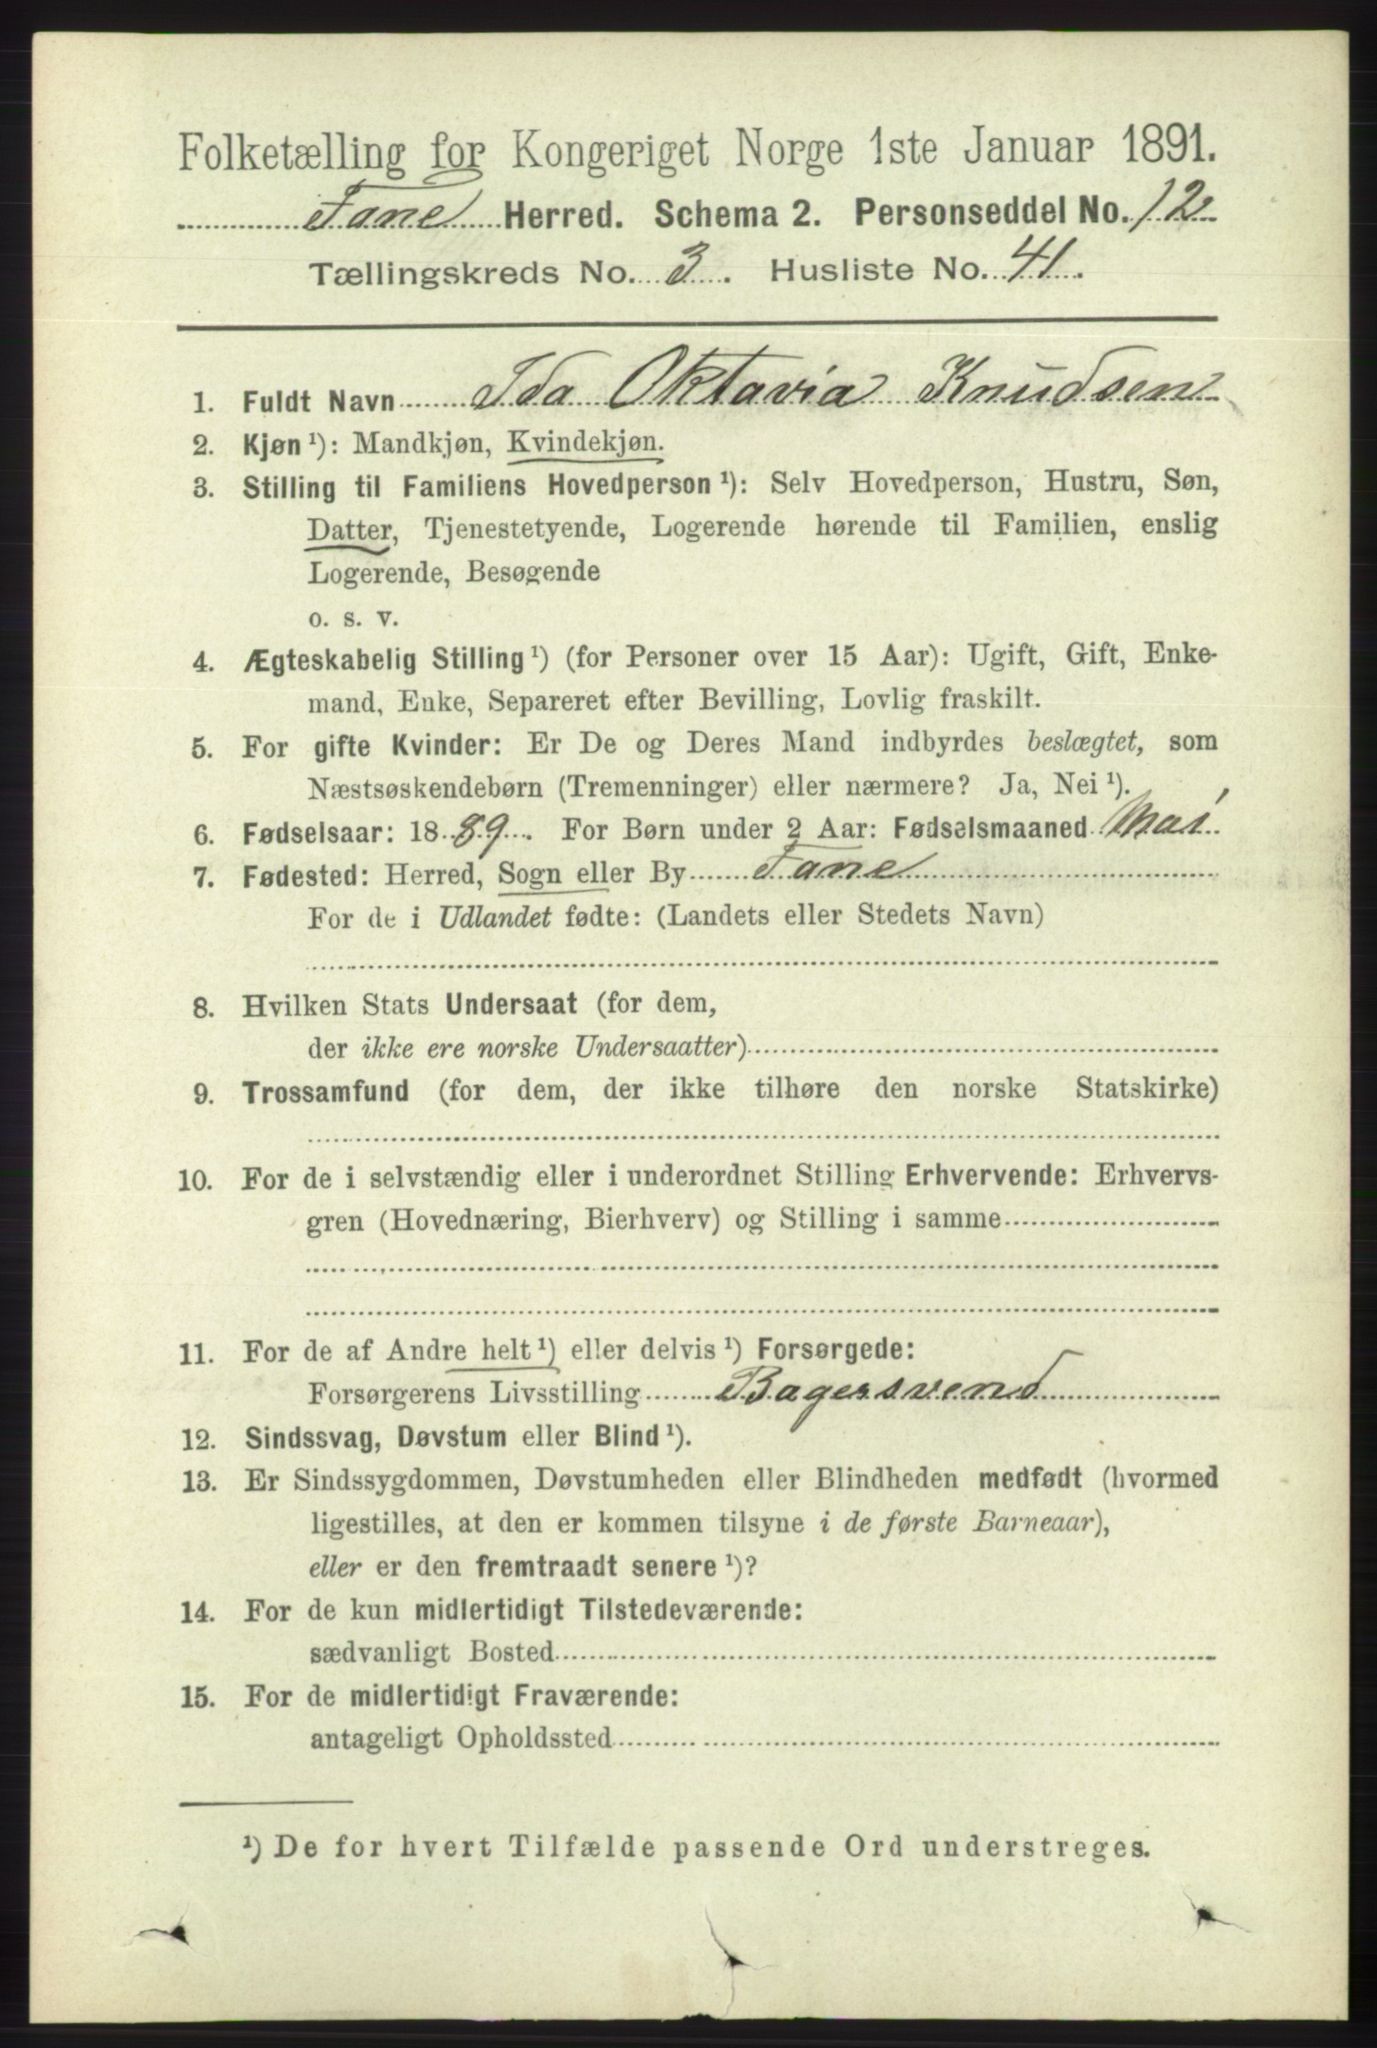 Folketælling for Kongeriget Norge 1ste Januar 1891.
Fane Herred. Schema 2. Personseddel No. 12
Tællingskreds No. 3. Husliste No. 41.
1. Fuldt Navn Ida Oktavia Knudsen
2. Kjøn ¹): Mandkjøn, Kvindekjøn.
3. Stilling til Familiens Hovedperson ¹): Selv Hovedperson, Hustru, Søn,
Datter, Tjenestetyende, Logerende hørende til Familien, enslig
Logerende, Besøgende
o. s. v.
4. Ægteskabelig Stilling ¹) (for Personer over 15 Aar): Ugift, Gift, Enke-
mand, Enke, Separeret efter Bevilling, Lovlig fraskilt.
5. For gifte Kvinder: Er De og Deres Mand indbyrdes beslægtet, som
Næstsøskendebørn (Tremenninger) eller nærmere? Ja, Nei ¹).
6. Fødselsaar: 1889. For Børn under 2 Aar: Fødselsmaaned Mai.
7. Fødested: Herred, Sogn eller By Fane
For de i Udlandet fødte: (Landets eller Stedets Navn)
8. Hvilken Stats Undersaat (for dem,
der ikke ere norske Undersaatter)
9. Trossamfund (for dem, der ikke tilhøre den norske Statskirke)
10. For de i selvstændig eller i underordnet Stilling Erhvervende: Erhvervs-
gren (Hovednæring, Bierhverv) og Stilling i samme
11. For de af Andre helt ¹) eller delvis ¹) Forsørgede:
Forsørgerens Livsstilling Bagersvend
12. Sindssvag, Døvstum eller Blind ¹).
13. Er Sindssygdommen, Døvstumheden eller Blindheden medfødt (hvormed
ligestilles, at den er kommen tilsyne i de første Barneaar),
eller er den fremtraadt senere ¹)?
14. For de kun midlertidigt Tilstedeværende:
sædvanligt Bosted
15. For de midlertidigt Fraværende:
antageligt Opholdssted
¹) De for hvert Tilfælde passende Ord understreges.